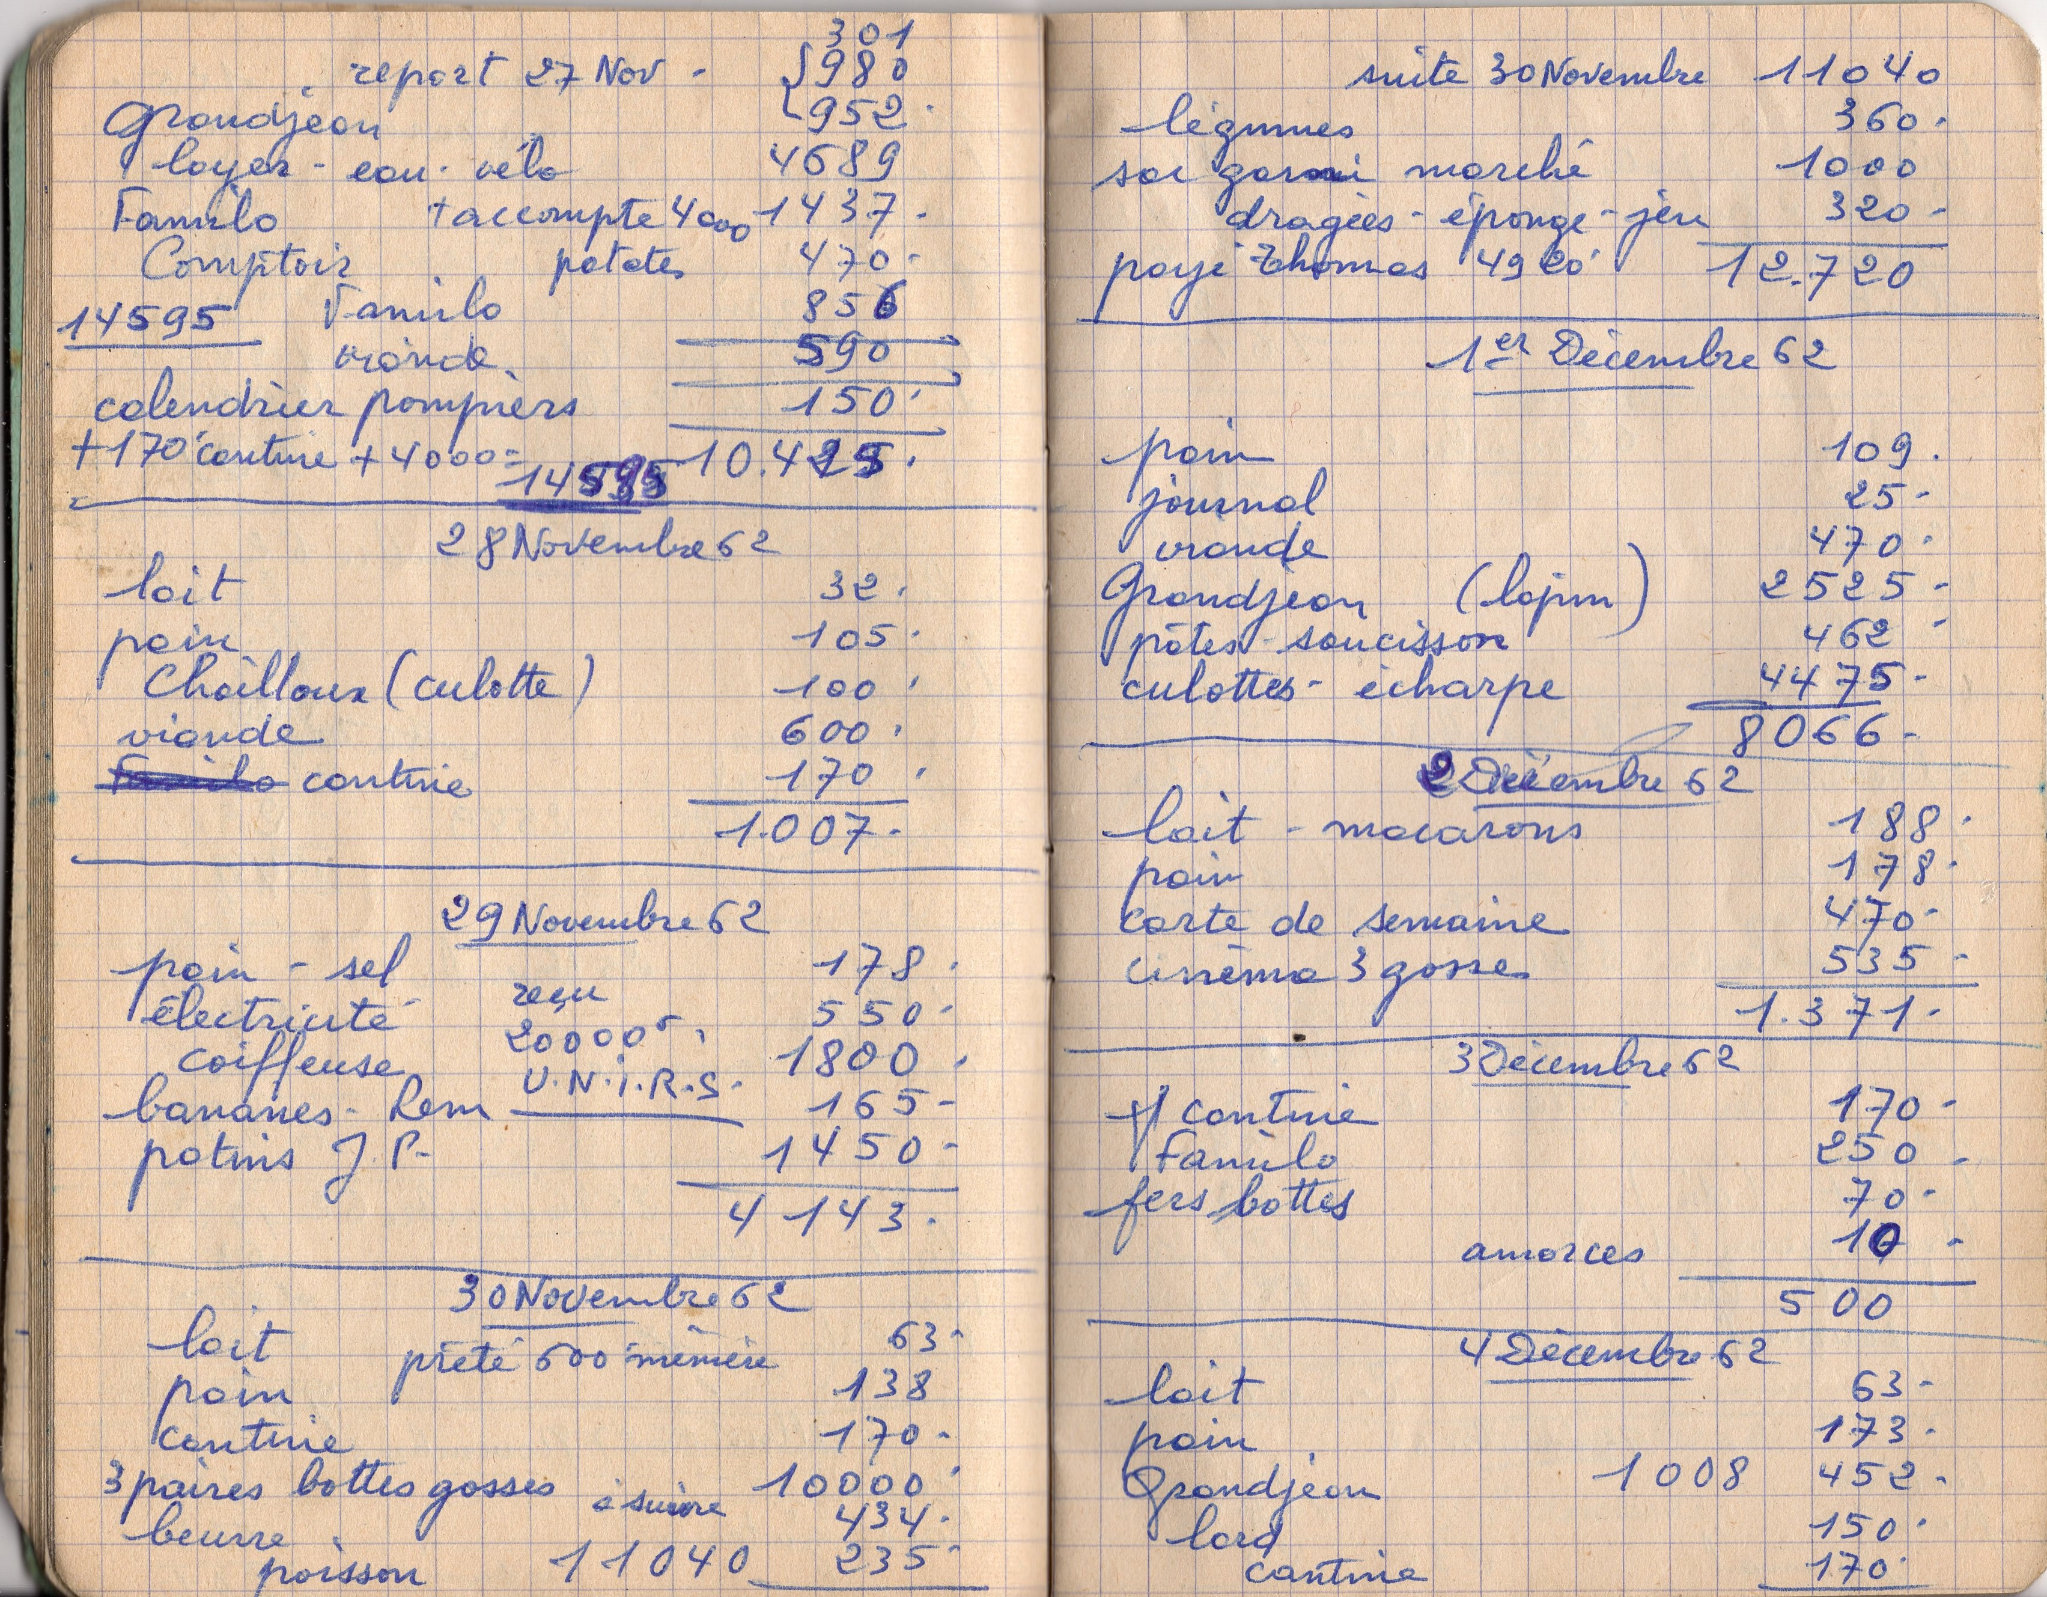 301
report 27 Nov - 980
Grandjean 952.
loyer - eau - vélo 4689
Familo + accompte 4000 1437.
Comptoir patates 470.
Familo 856
14595
viande 590
calendrier pompiers 150.
+170 cantine + 4000 = 14595 10.425.
28 Novembre 62
lait 32.
pain 105.
Chailloux (culotte) 100.
viande 600.
Familo cantine 170.
1.007.
29 Novembre 62
pain - sel 178.
électricité reçu 550.
coiffeuse 20000F. 1800.
bananes - Rem U.N.i.R.S. 165-
patins J.P. 1450-
4143.
30 Novembre 62
lait prêté 500 mémère 63-
pain 138
cantine 170-
3 paires bottes gosses 10000
beurre à suivre 434-
poisson 11040 235-
suite 30 Novembre 11040
légumes 360.
sac garni marché 1000
dragées - éponge - jeu 320-
payé Thomas 4920 12.720
1er Décembre 62
pain 109.
journal 25-
viande 470.
Grandjean (lapin) 2525-
pâtes - saucisson 462-
culottes - écharpe 4475-
8066-
2 Décembre 62
lait - macarons 188.
pain 178.
carte de semaine 470-
cinéma 3 gosses 535-
1.371-
3 Décembre 62
cantine 170-
Familo 250-
fers bottes 70-
amorces 10-
500
4 Décembre 62
lait 63-
pain 173-
Grandjean 1008 452-
lard 150.
cantine 170.